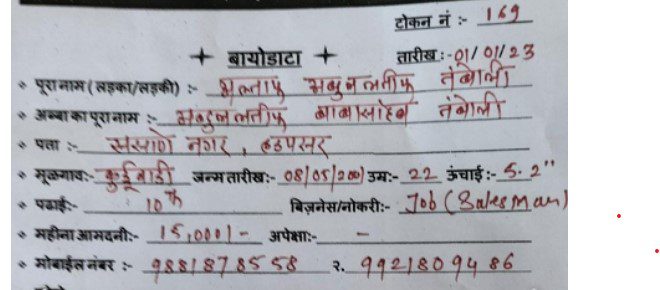 टोकन नं :- 169
बायोडाटा तारीख :- 01/01/23
पूरा नाम (लड़का/लड़की) :- अल्ताफ अब्दुललतीफ तंबोली
अब्बा का पूरा नाम :- अब्दुललतीफ बाबासाहेब तंबोली
पता :- ससाणे नगर, हडपसर
मूळगाव:- कुर्डूवाडी जन्म तारीख:- 08/05/2001 उम्र:- 22 ऊंचाई:- 5.2"
पढाई:- 10th बिज़नेस/नोकरी:- Job (Sales Man)
महीना आमदनी:- 15,000/- अपेक्षा:- -
मोबाईल नंबर :- 9881878558 २. 9921809486